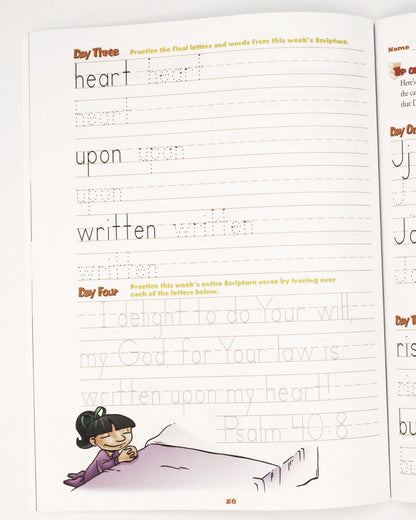 Day Three Practice the final letters and words from this week's Scripture.
heart heart
heart
upon upon
upon
written written
written
Day Four Practice this week's entire Scripture verse by tracing over
each of the letters below.
I delight to do Your will,
my God, for Your law is
written upon my heart!
Psalm 40:8
80
Name
Here's
the ca
that D
Day On
Jj
J
Ja
Day T
ris
bu